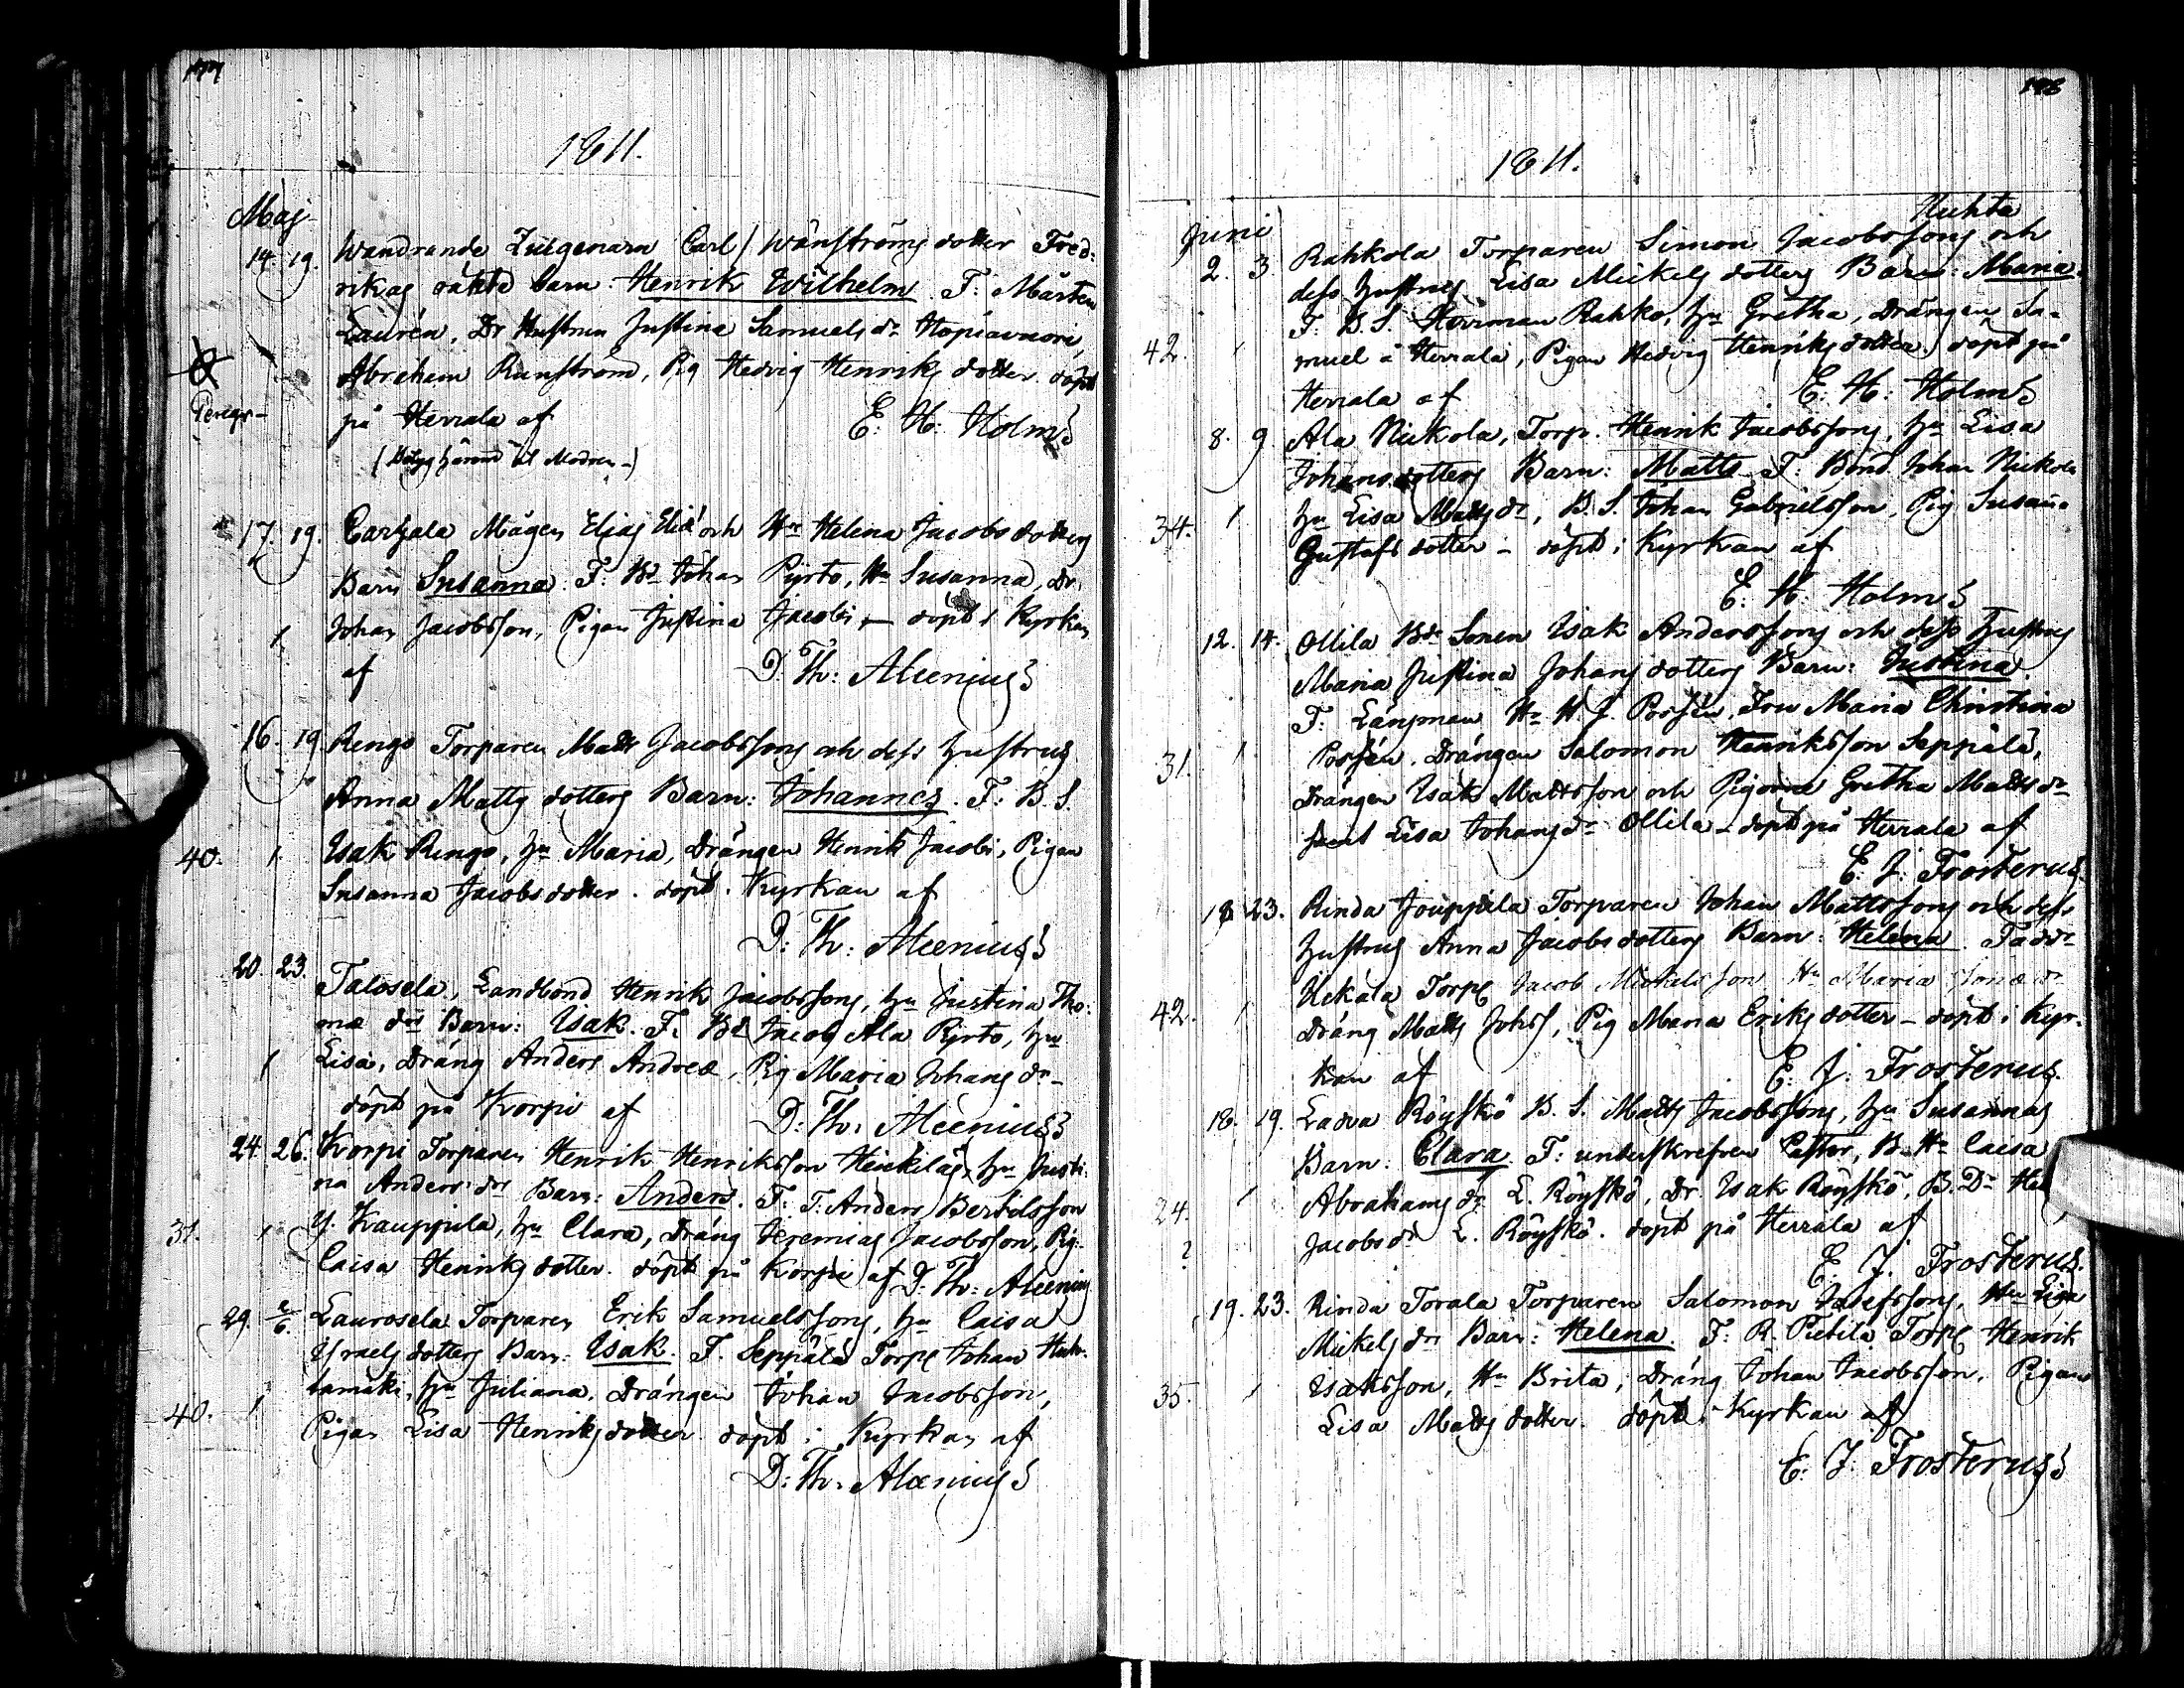 1811.
Maj
14. 19. Wandrande Zuigenarn Carl Wånströms dotter Fred:
rikas oäkta barn: Henrik Wilhelm. F: Mårten
Laurén, Dr Hustrun Justina Samuels dr
Abraham Runström, Pig Hedvig Henriks dotter döpt
Peregr-
på Herrala af E: H: Holm
17. 19. Carhala Mågen Elias Eliæ och Hu Helena Jacobsdotters
Barn Susanna. F: Bd Johan Pyrto, Hu Susanna, Dr.
1. Johan Jacobsson, Pigan Justina Jacobs, – döpt i Kyrkan
af D: Th: Alcenius
16. 19. Rengo Torparen Matts Jacobssons och dess hustrus
Anna Matts dotters Barn: Johannes. F: B. S.
40. 1. Isak Rengo, hu Maria, Drängen Henrik Jacobs, Pigan
Susanna Jacobsdotter. döpt i Kyrkan af
D: Th: Alcenius
20. 23. Talosela, Landbond Henrik Jacobssons, hu Justina Tho:
mæ drs Barn: Isak. F: Bd Jacob Ala Pyrto, hu
1 Lisa, Dräng Anders Andreæ, Pig Maria Johans dr –
döpt på Korpi af D: Th: Alcenius
24. 26. Korpi Torparen Henrik Henriksson Heickiläs, hu Justi:
na Anders drs Barn: Anders. F: T: Anders Bertilsson
31. 1 Y. Kauppila, hu Clara, Dräng Jeremias Jacobsson, Pig.
Caisa Henriks dotter. döpt på Korpi af D: Th: Alcenius
29. 2/6. Laurosela Torparen Erik Samuelssons, hu Caisa
Israels dotters Barn: Isak. F. Seppälä Torp Johan Huh-
tamäki, hu Juliana, Drängen Johan Jacobsson,
40. 1 Pigan Lisa Henriksdotter döpt i Kyrkan af
D: Th: Alcenius
1811.
Huhta
Juni
2. 3. Rahkola Torparen Simon Jacobssons och
dess hustrus Lisa Mickels dotters Barn: Maria.
F: B. S. Herrman Rahko, hu Gretha, Drängen Sa-
42. 1 muel å Herrala, Pigan Hedvig Henriks dotter. döpt på
Herrala af E: H: Holm
8. 9. Ala Nickola, Torp. Henrik Jacobssons, hu Lisa
Johansdotters Barn: Matts. F: Bond. Johan Nickola
34. 1 hu Lisa Matts dr, B. S. Johan Gabrielsson, Pig Susan̄a
Gustafs dotter – döpt i Kyrkan af
E: H: Holm
12. 14. Ollila Bde Sonen Isak Anderssons och dess hustrus
Maria Justina Johans dotters Barn: Justina.
F: Länsman Hr H. J. Possén, Fru Maria Christina
31. 1 Possén. Drängen Salomon Henriksson Seppälä,
Drängen Isak Mattsson och Pigorna Gretha Matts dr
samt Lisa Johans dr Ollila – döpt på Herrala af
E: J: Frosterus
18 23. Rinda Jouppila Torparen Johan Mattssons och dess
hustrus Anna Jacobsdotters Barn: Helena. Fadd:
Torp Jacob Mickelsson Hu Maria
42. 1 Dräng Matts Johss, Pig Maria Eriks dotter – döpt i Kyr-
kan af E: J: Frosterus.
18. 19. Ladva Röyskö B. S. Matts Jacobssons, hu Susannas
Barn: Clara. F: underskrefven Pastor, B. Hu Caisa
24. 1 Abrahams dr L. Röyskö, Dr. Isak Röyskö, B. Dr
? Jacobs dr L. Röyskö. döpt på Herrala af
E. J. Frosterus.
19. 23. Rinda Torala Torparen Salomon Josefssons, Hu Lisa
Mickels drs Barn: Helena. F: R. Pietilä Torp Henrik
35. 1 Isaksson, Hu Brita, Dräng Johan Jacobsson. Pigan
Lisa Matts dotter. döpt i Kyrkan af
E: J. Frosterus